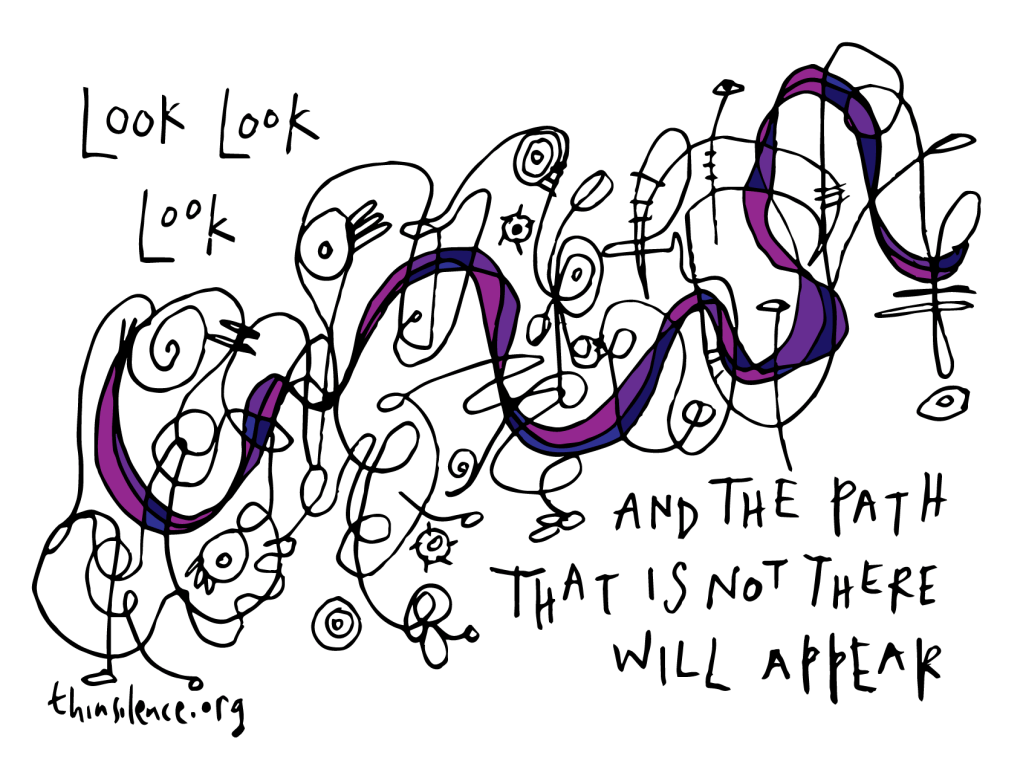 Look Look
Look
AND THE PATH
THAT IS NOT THERE
WILL APPEAR
thinsilence.org